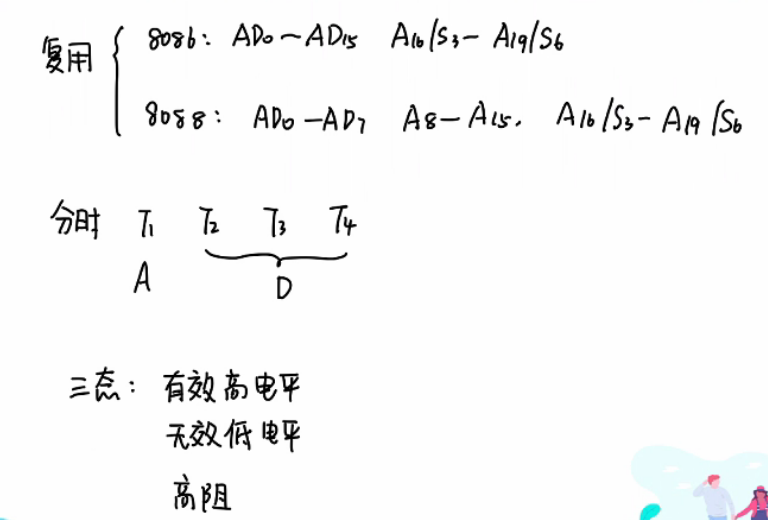 复用 8086: AD0~AD15 A16/S3-A19/S6
8088: AD0-AD7 A8-A15. A16/S3-A19/S6
分时 T1 T2 T3 T4
A D
三态: 有效高电平
无效低电平
高阻